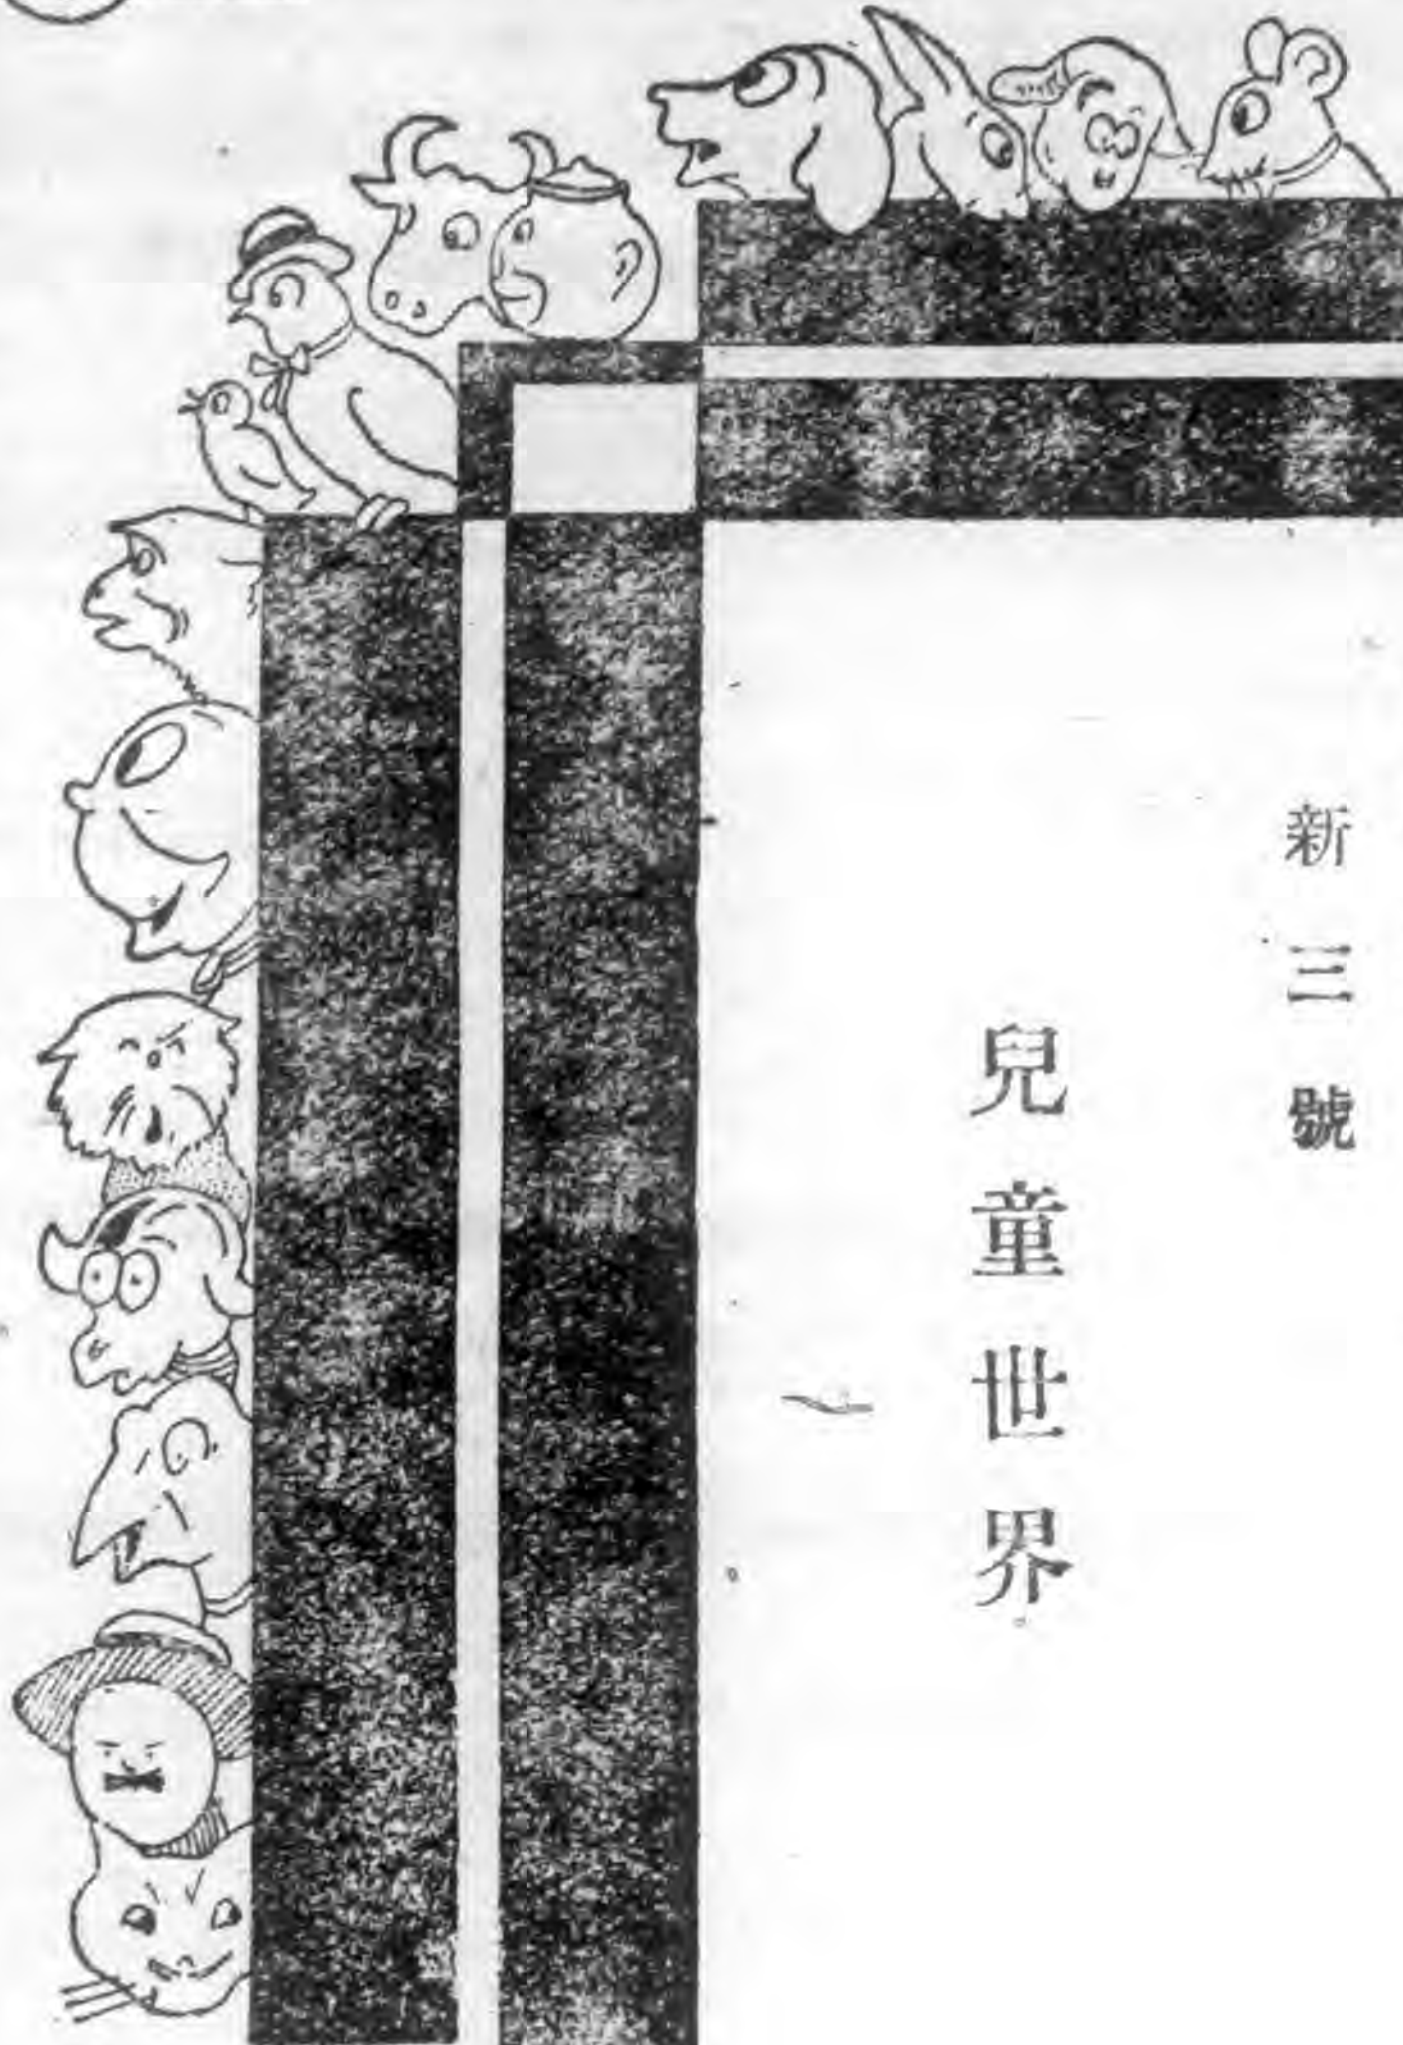 新三號
兒童世界